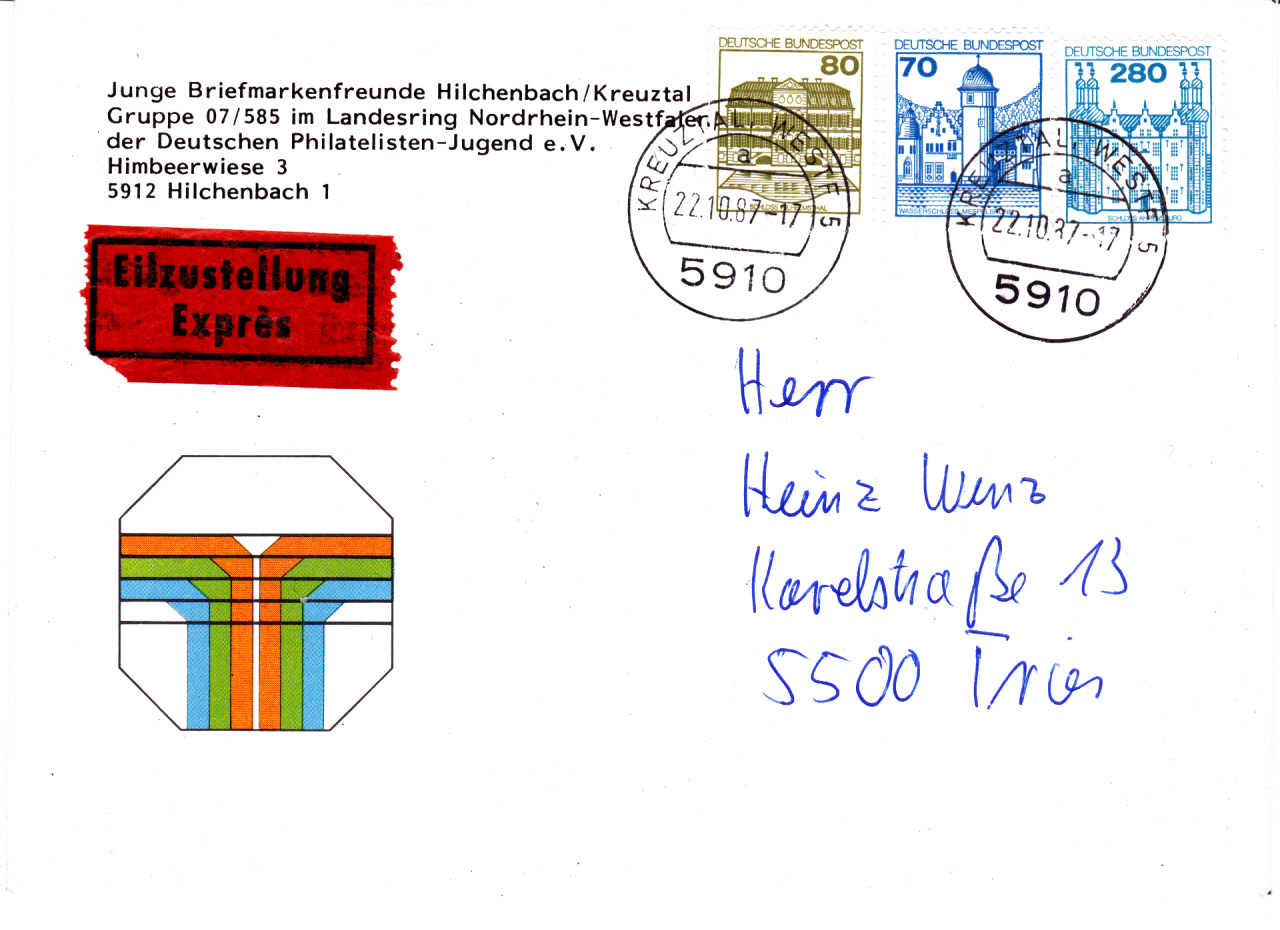 Junge Briefmarkenfreunde Hilchenbach/Kreuztal
Gruppe 07/585 im Landesring Nordrhein-Westfalen
der Deutschen Philatelisten-Jugend e.V.
Himbeerwiese 3
5912 Hilchenbach 1
Eilzustellung
Exprès
DEUTSCHE BUNDESPOST
80
SCHLOSS WILHELMSTHAL
DEUTSCHE BUNDESPOST
70
WASSERSCHLOSS MESPELBRUNN
DEUTSCHE BUNDESPOST
280
SCHLOSS AHRENSBURG
KREUZTAL, WESTF 5
a
22.10.87-17
5910
KREUZTAL, WESTF 5
a
22.10.87-17
5910
Herr
Heinz Wenz
Karelstraße 13
5500 Trier